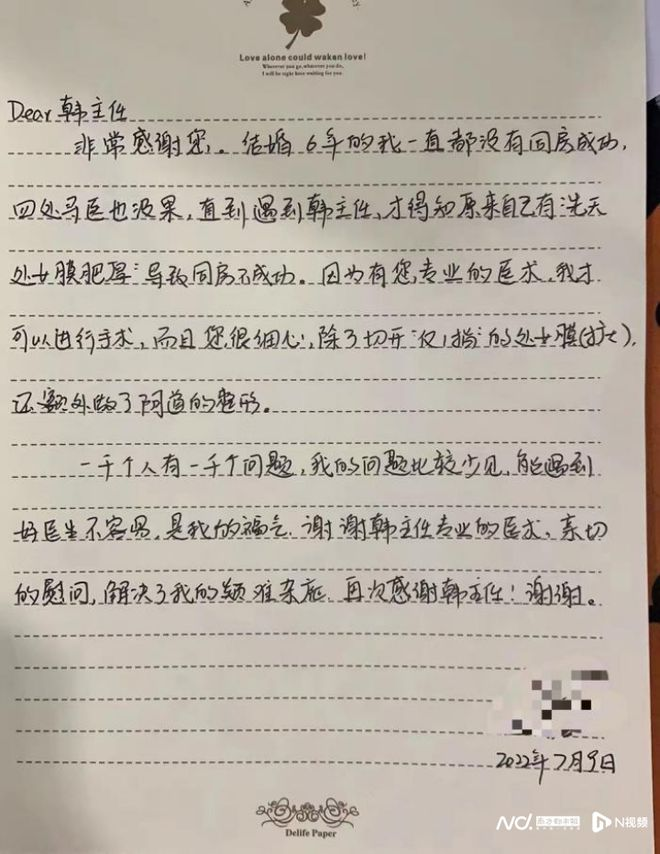 Love alone could waken love!
Wherever you go, whatever you do,
I will be right here waiting for you
Dear 韩主任
非常感谢您。结婚6年的我一直都没有同房成功,
四处寻医也没果,直到遇到韩主任,才得知原来自己有先天
处女膜肥厚导致同房不成功。因为有您专业的医术,我才
可以进行手术,而且您很细心,除了切开"仅1指"的处女膜(扩大),
还额外做了阴道的整形。
一千个人有一千个问题,我的问题比较少见,能遇到
好医生不容易,是我的福气.谢谢韩主任专业的医术,亲切
的慰问,解决了我的疑难杂症.再次感谢韩主任!谢谢。
2022年7月9日
Delife Paper
N视频